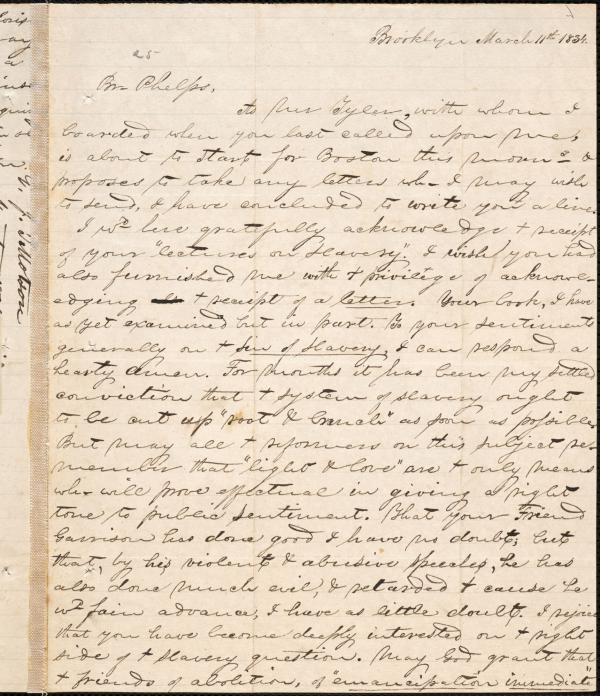 Brooklyn March 11th 1834.
25
Br Phelps,
As Mr Tyler, with whom I
boarded when you last called upon me,
is about to start for Boston this morng &
proposes to take any letter wh- I may wish
to send, I have concluded to write you a line.
I wd here gratefully acknowledge + receipt
of your "lectures on Slavery". I wish you had
also furnished me with + privilege of acknowl-
edging + receipt of a letter. Your book, I have
as yet examined but in part. To your sentiments
generally on + sin of slavery, I can respond a
hearty amen. For months it has been my settled
conviction that + system of slavery ought
to be cut up "root & branch" as soon as possible.
But may all + reformers on this subject re-
member that "light & love" are + only means
wh- will prove effectual in giving a right
tone to public sentiment. That your Friend
Garrison has done good I have no doubt; but
that, by his violent & abusive speeches, he has
also done much evil, & retarded + cause he
wd fain advance, I have as little doubt. I rejoice
that you have become deeply interested on + right
side of + slavery question. May God grant that
+ friends of abolition, of "emancipation immediate"
G. J. Tillotson